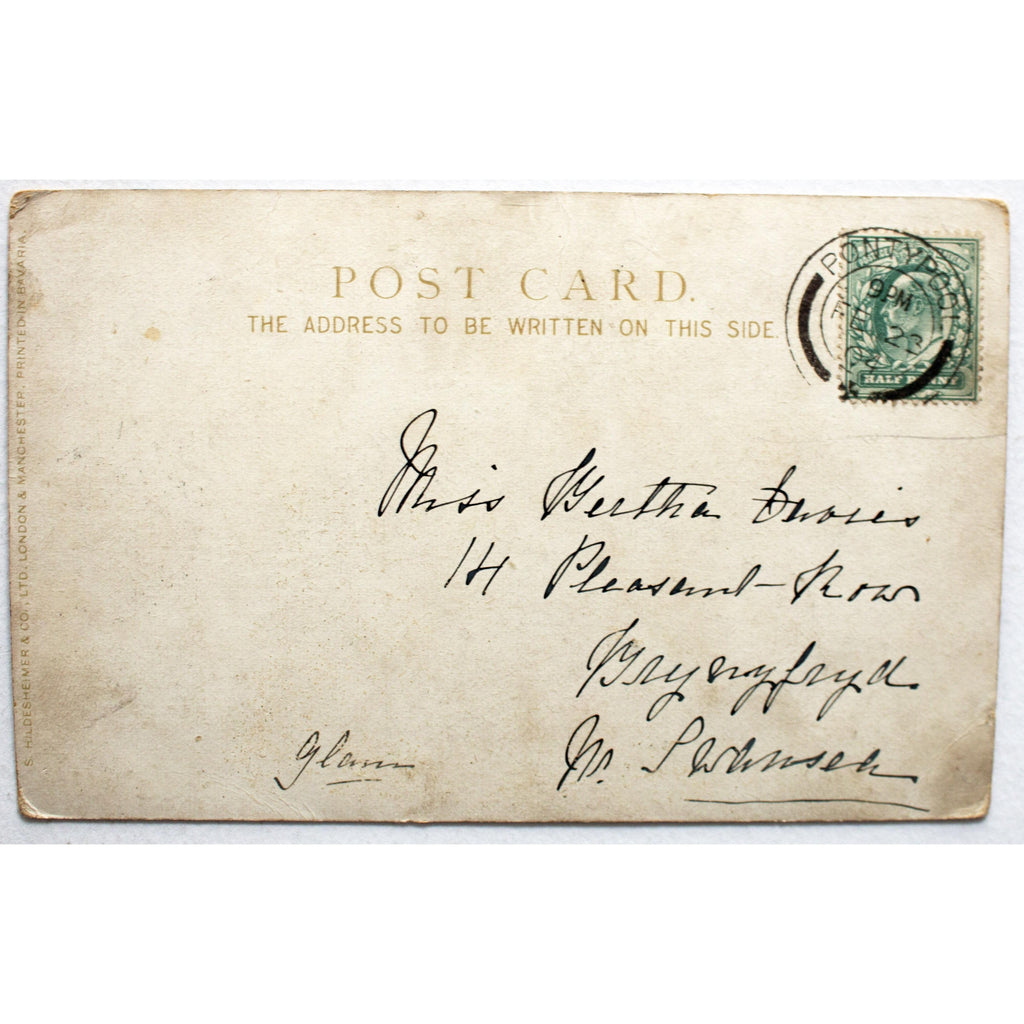 POST CARD.
THE ADDRESS TO BE WRITTEN ON THIS SIDE.
S. HILDESHEIMER & CO., LTD. LONDON & MANCHESTER. PRINTED IN BAVARIA.
PONTYPOOL
9 PM
23
04
HALF PENNY
Miss Bertha Davies
14 Pleasant Row
Brynyfryd
Nr. Swansea
Glam